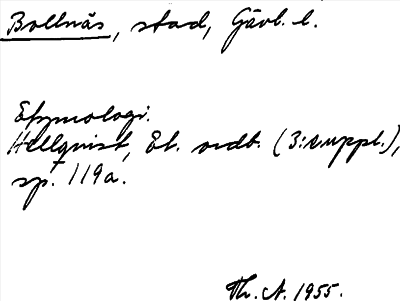 Bollnäs, stad, Gävl. l.
Etymologi.
Hellquist, Et. ordb. (3:suppl.),
sp. 119a.
Th. A. 1955.